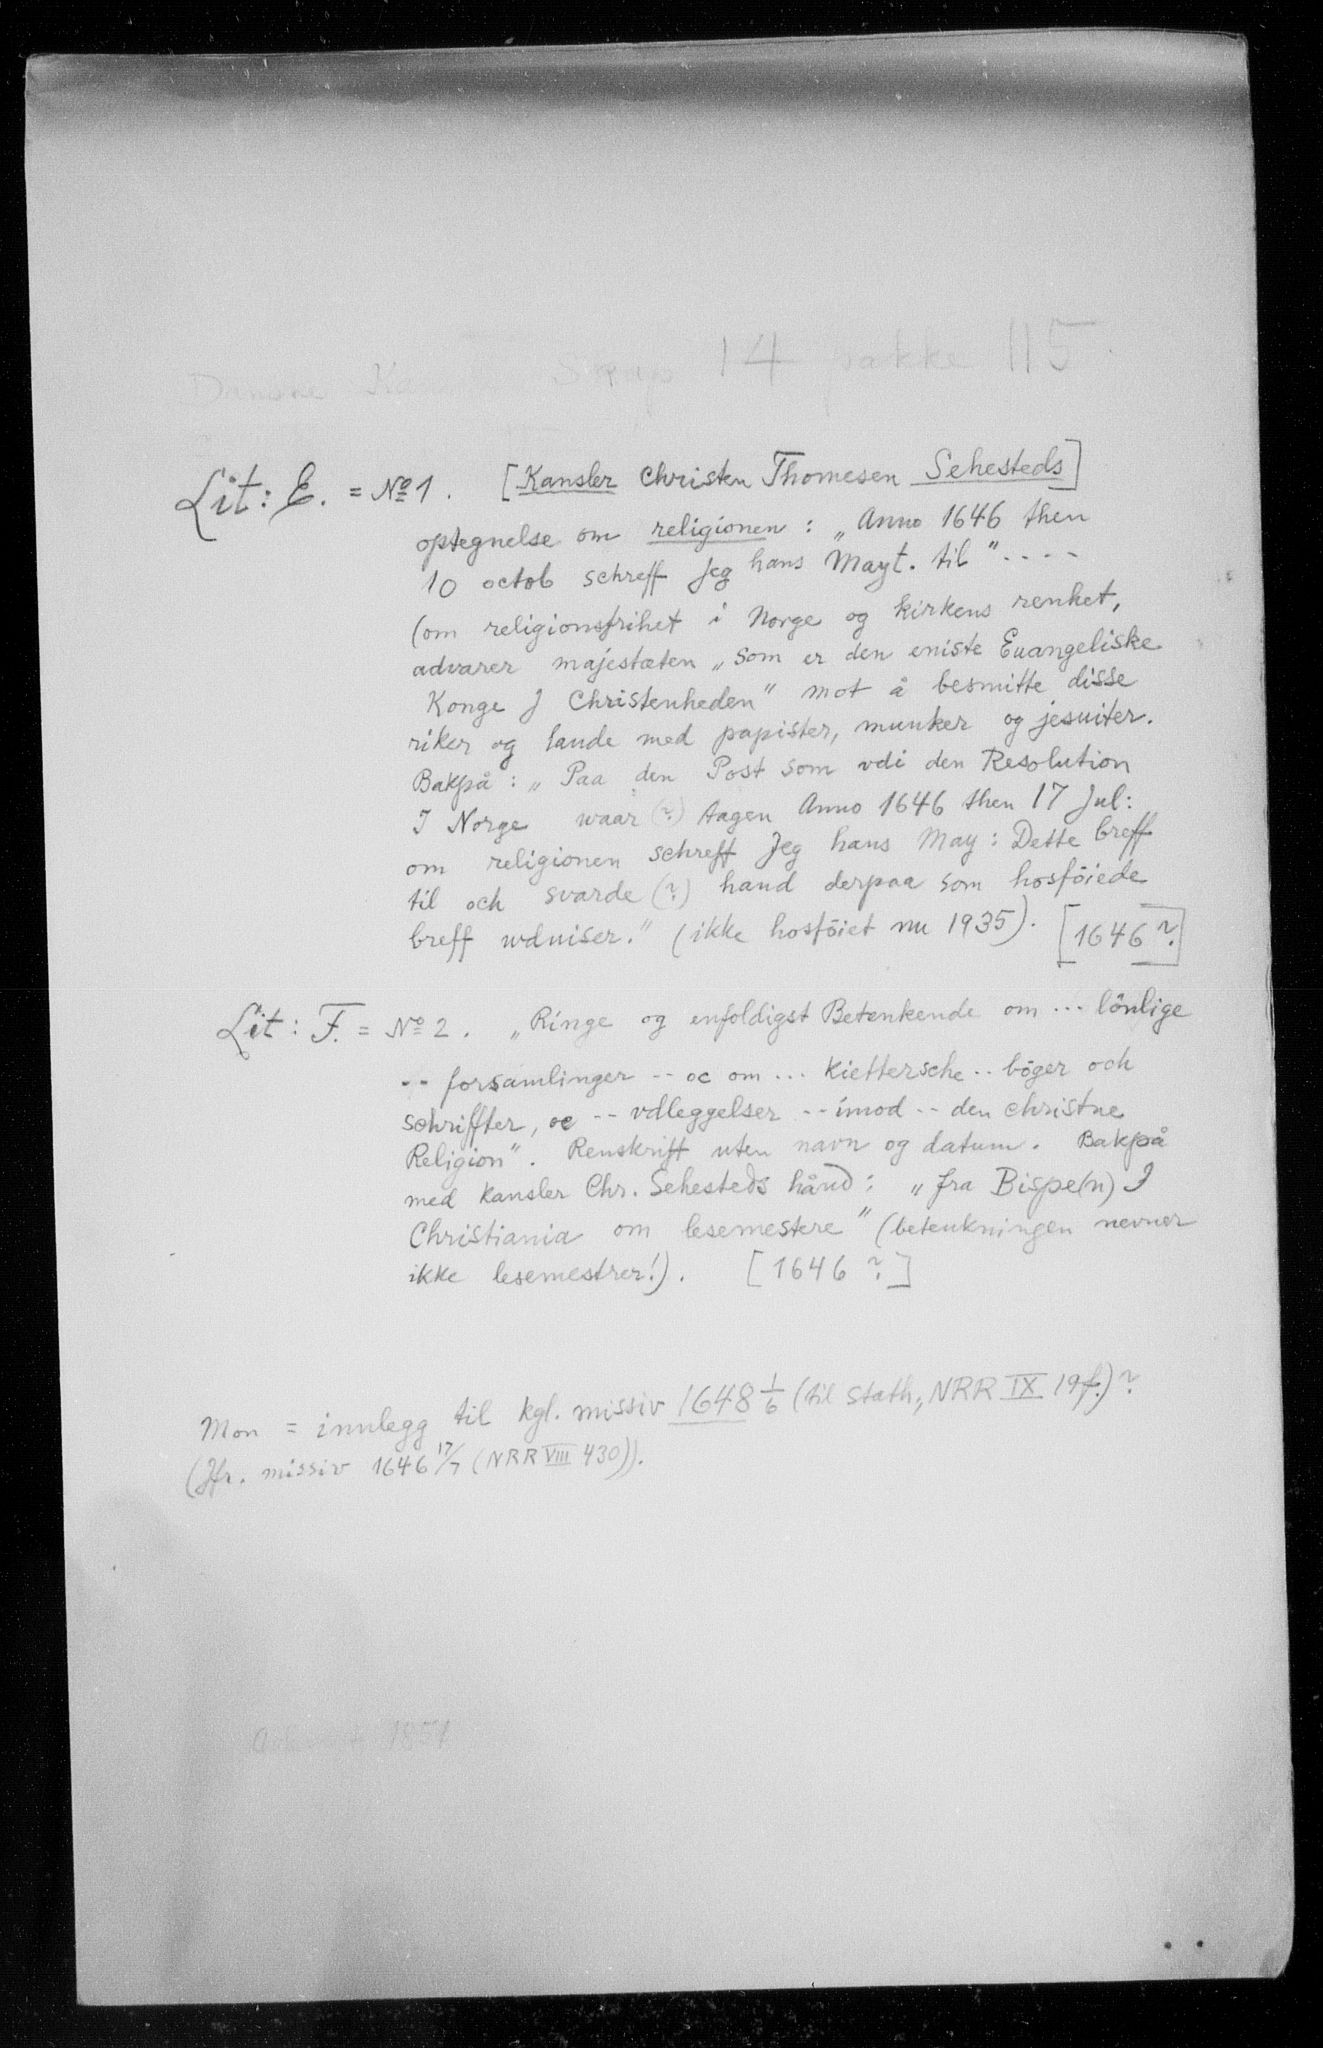 Danske Skap 14 pakke 115.
Lit: E. = No 1. [Kansler Christen Thomesen Sehesteds]
optegnelse om religionen : „Anno 1646 then
10 octob schreff Jeg hans Mayt. til" ----
(om religionsfrihet i Norge og kirkens renhet,
advarer majestæten „som er den eniste Euangeliske
Konge J Christenheden" mot å besmitte disse
riker og lande med papister, munker og jesuiter.
Bakpå : „Paa den Post som vdi den Resolution
I Norge waar (?) tagen Anno 1646 then 17 Jul:
om religionen schreff Jeg hans May: Dette breff
til och svarde (?) hand derpaa som hosföiede
breff wduiser." (ikke hosföiet nu 1935). [1646 ?]
Lit: F. = No 2. „Ringe og enfoldigst Betenkende om ... lönlige
-- forsamlinger -- oc om ... kiettersche .. böger och
schriffter, oc -- vdleggelser -- imod -- den christne
Religion". Renskrift uten navn og datum. Bakpå
med kansler Chr. Sehesteds hånd: „fra Bispe(n) J
Christiania om lesemestere" (betenkningen nevner
ikke lesemestrer!). [1646 ?]
Mon = innlegg til kgl. missiv 1648 1/6 (til stath., NRR IX 19f.)?
(Jfr. missiv 1646 17/7 (NRR VIII 430)).